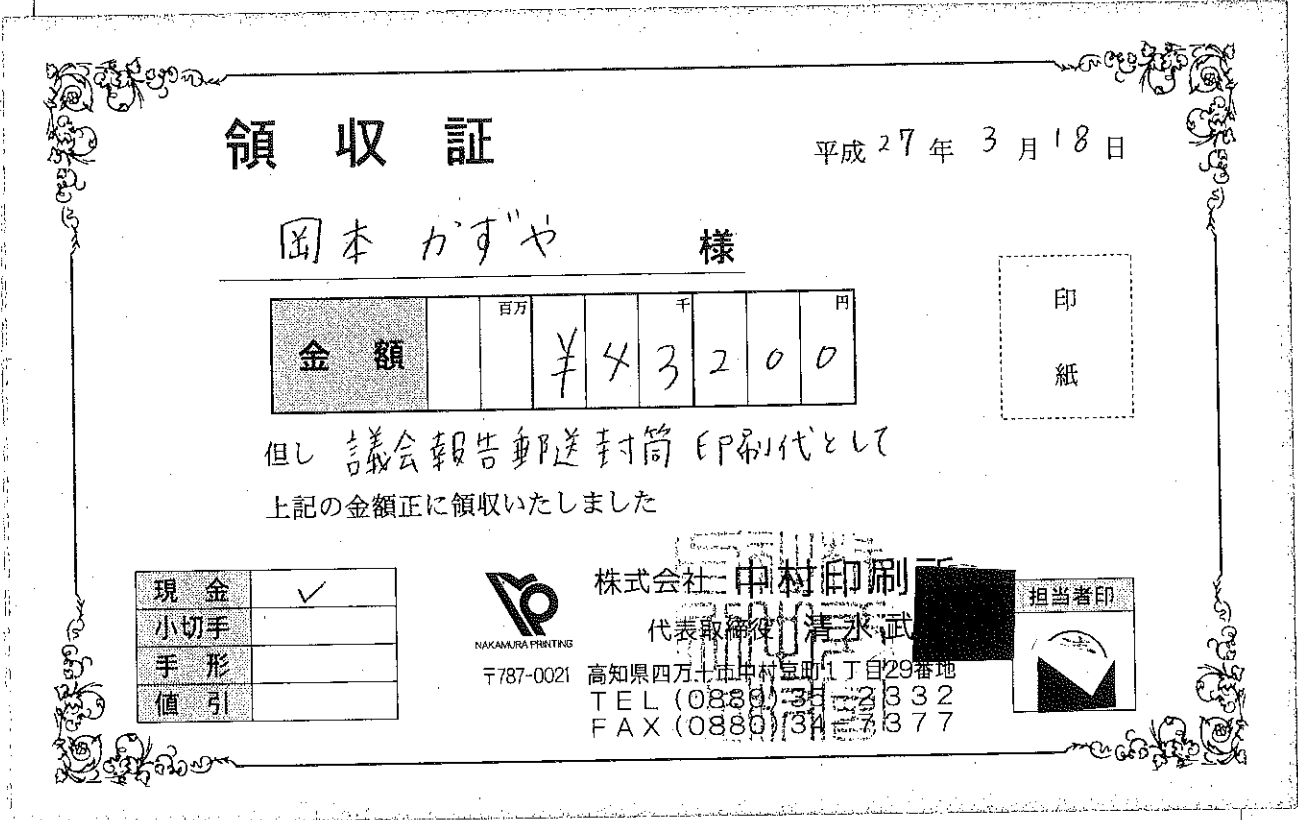 領収証
平成27年3月18日
岡本 かずや 様
印紙
金額 百万 千 円
¥43200
但し 議会報告郵送封筒印刷代として
上記の金額正に領収いたしました
現金 ✓
小切手
手形
値引
NAKAMURA PRINTING
株式会社 中村印刷
代表取締役 清水 武
〒787-0021 高知県四万十市中村京町1丁目29番地
TEL(0880)35-2332
FAX(0880)34-7377
担当者印